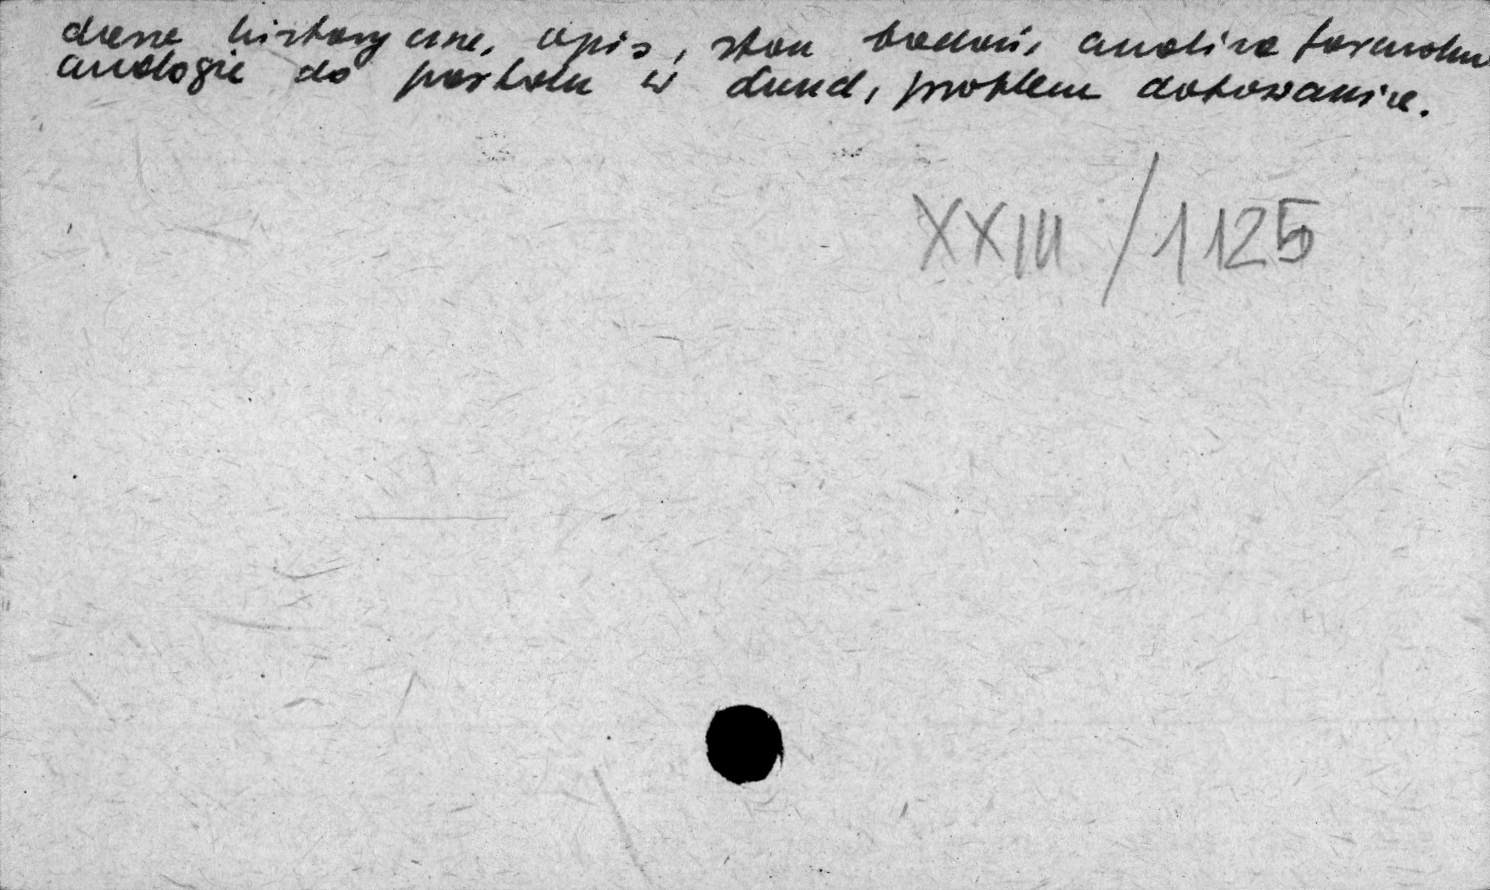 dane historyczne, opis, stan badań, analiza formalna
analogie do portalu w Lund, problem datowania.
XXIII/1125